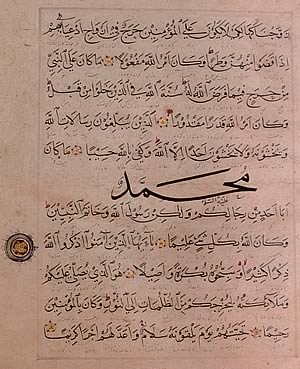 زوجناكها لكي لا يكون على المؤمنين حرج في أزواج أدعيائهم
إذا قضوا منهن وطرا وكان أمر الله مفعولا ما كان على النبي
من حرج فيما فرض الله له سنة الله في الذين خلوا من قبل
وكان أمر الله قدرا مقدورا الذين يبلغون رسالات الله
ويخشونه ولا يخشون أحدا إلا الله وكفى بالله حسيبا ما كان
محمد
أبا أحد من رجالكم ولكن رسول الله وخاتم النبيين
وكان الله بكل شيء عليما يا أيها الذين آمنوا اذكروا الله
ذكرا كثيرا وسبحوه بكرة وأصيلا هو الذي يصلي عليكم
وملائكته ليخرجكم من الظلمات إلى النور وكان بالمؤمنين
رحيما تحيتهم يوم يلقونه سلام وأعد لهم أجرا كريما